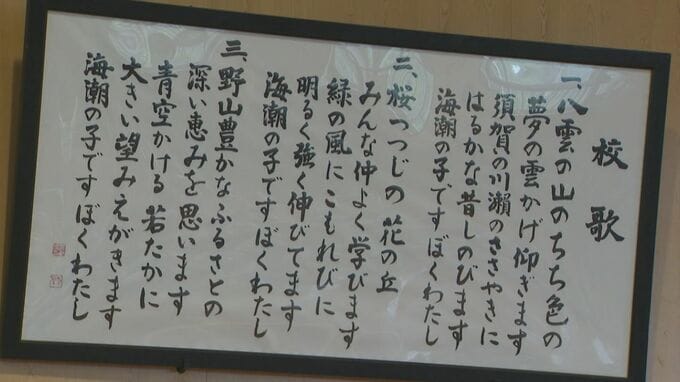 校歌
一、八雲の山のちち色の
夢の雲かげ仰ぎます
須賀の川瀬のささやきに
はるかな昔しのびます
海潮の子ですぼくわたし
二、桜つつじの花の丘
みんな仲よく学びます
緑の風にこもれびに
明るく強く伸びてます
海潮の子ですぼくわたし
三、野山豊かなふるさとの
深い恵みを思います
青空かける若たかに
大きい望みえがきます
海潮の子ですぼくわたし